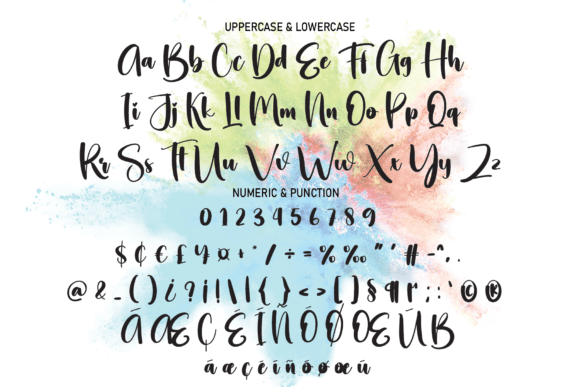 UPPERCASE & LOWERCASE
Aa Bb Cc Dd Ee Ff Gg Hh
Ii Jj Kk Ll Mm Nn Oo Pp Qq
Rr Ss Tt Uu Vv Ww Xx Yy Zz
NUMERIC & PUNCTION
0 1 2 3 4 5 6 7 8 9
$ ¢ € £ ¥ ¤ + * / ÷ = % ‰ " ' # - ^ , .
@ & _ ( ) ¿ ? ¡ ! \ | { } < > [ ] § ¶ r ; : ` © ®
Á Æ Ç É Í Ñ Ó Ø Œ Ú B
á æ ç é í ñ ó ø œ ú